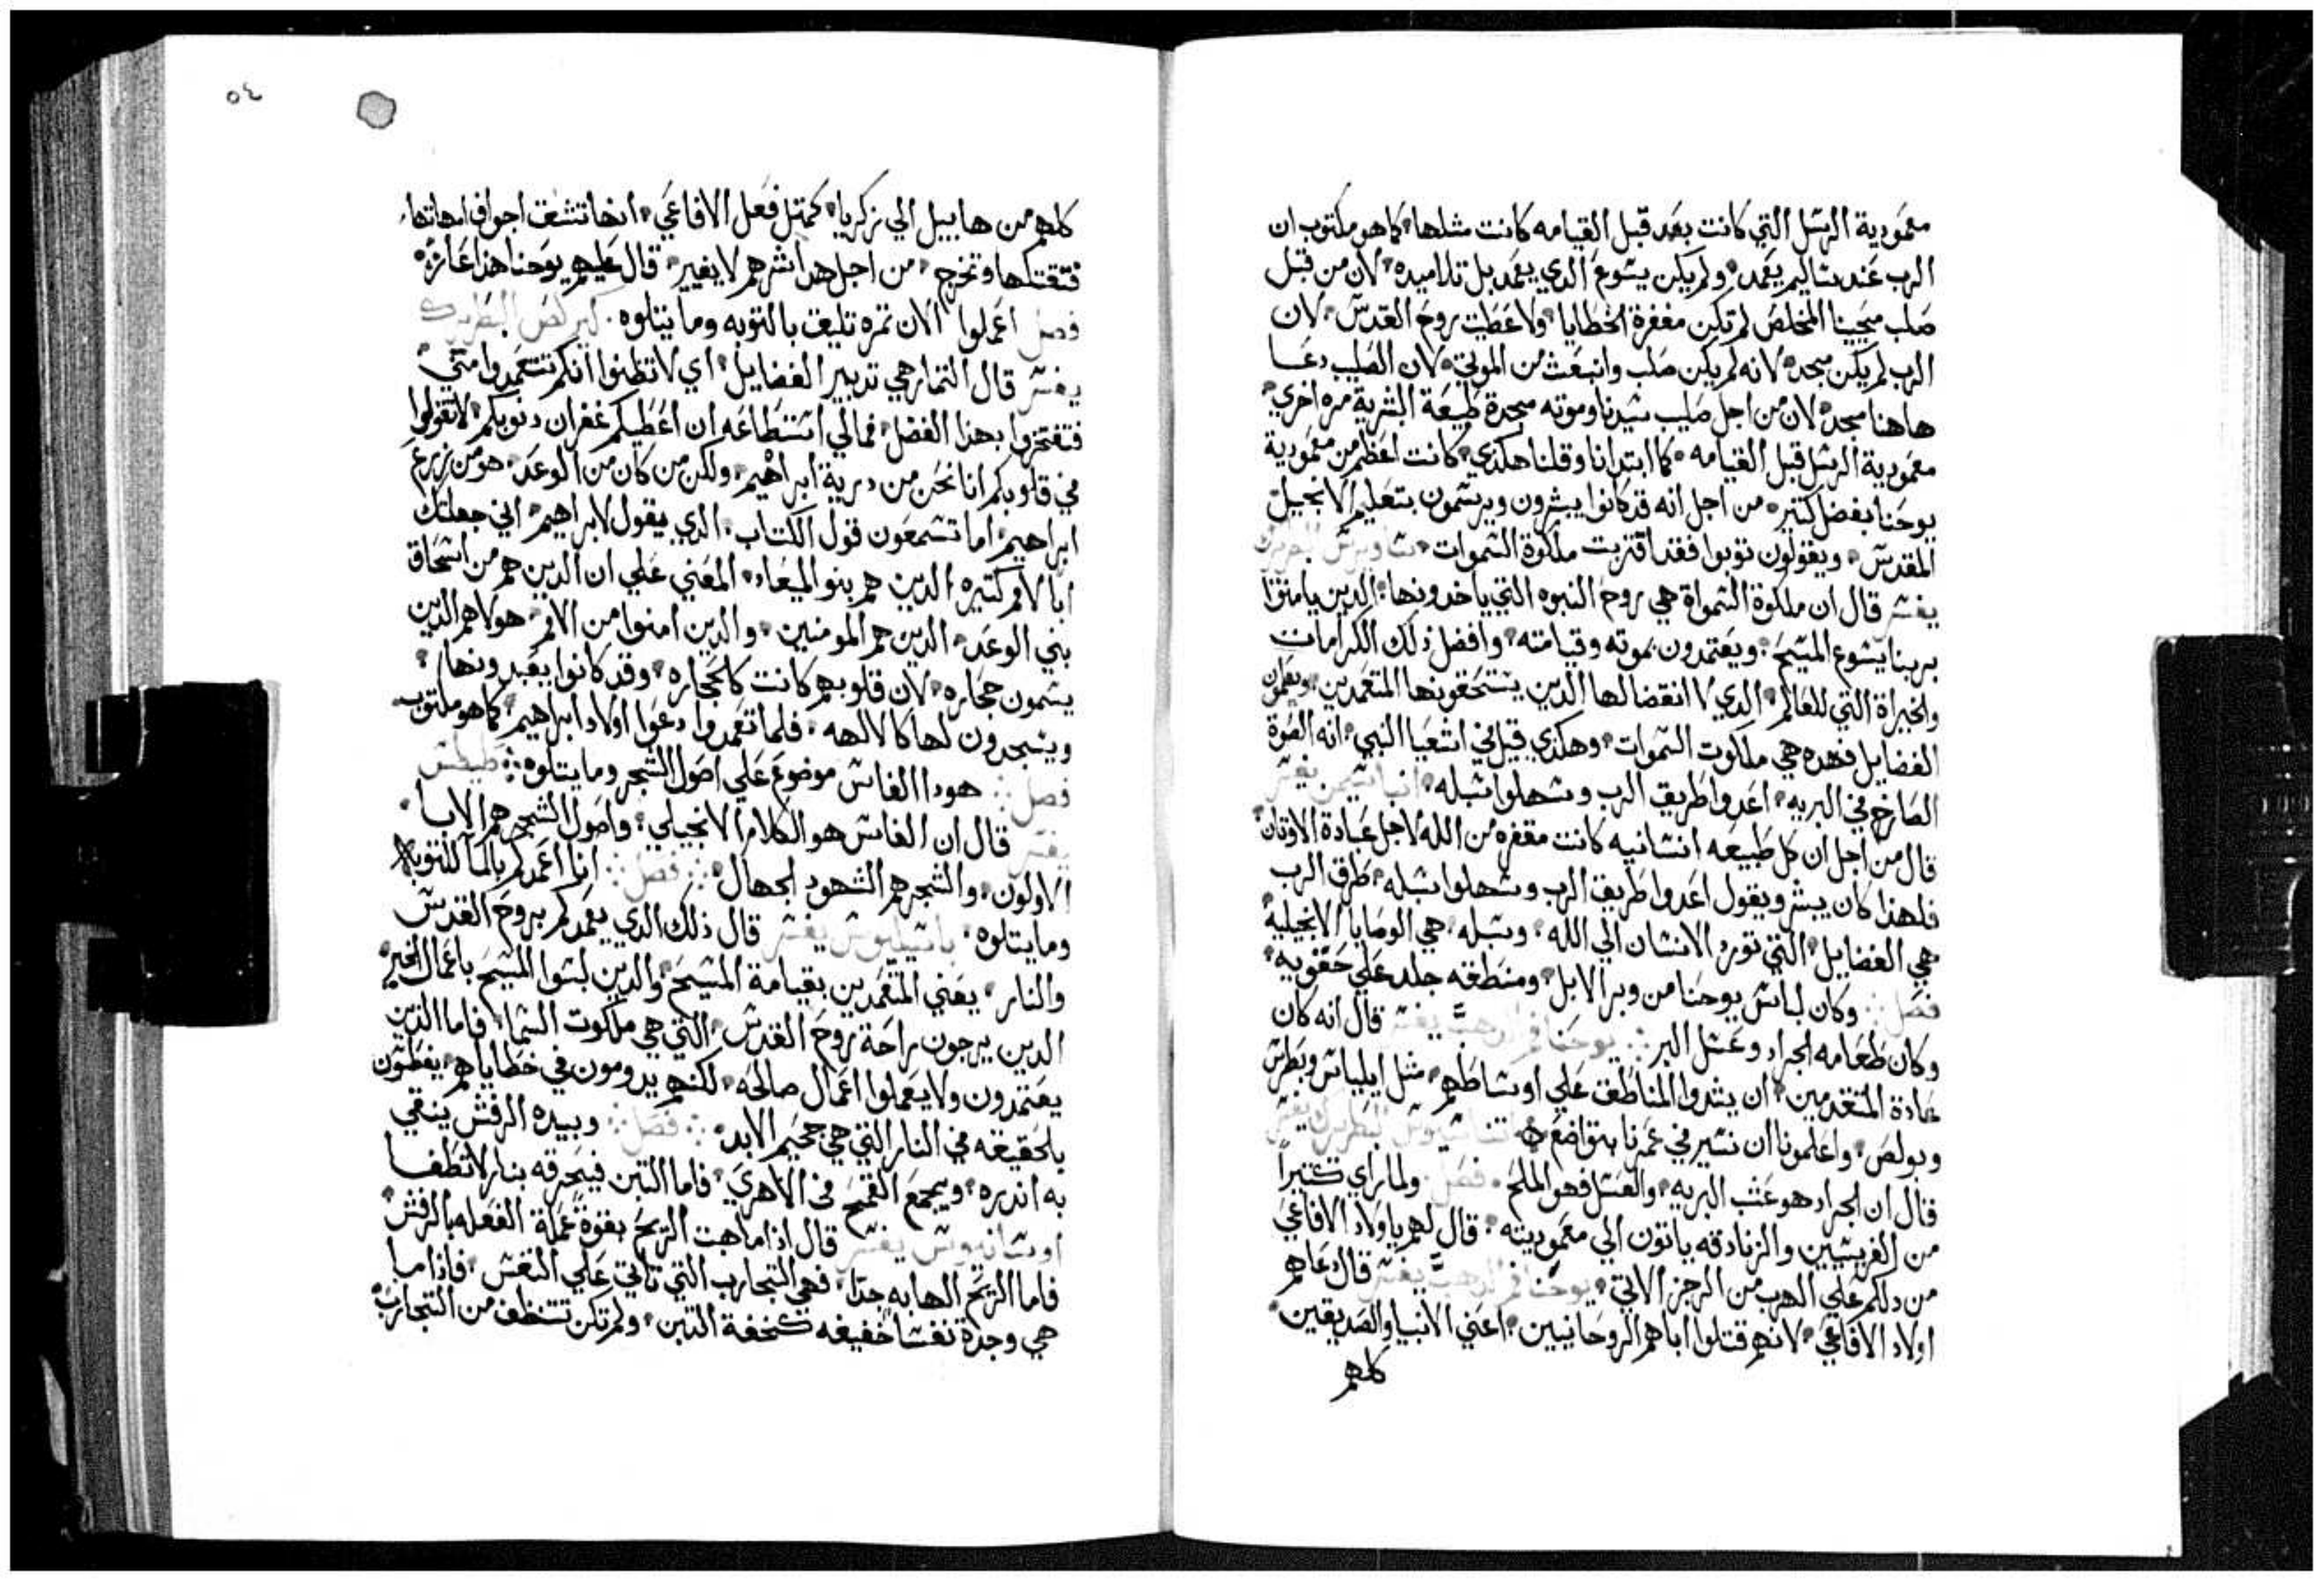 معمودية الرسل التي كانت بعد قبل القيامه كانت مثلها كما هو مكتوب ان
الرب عند يعمد ولم يكن يسوع الدي يعمد بل تلاميده لان من قبل
صلب مسيحنا المخلص لم تكن مغفرة الخطايا ولا عطيت روح القدس لان
الرب لم يكن مجد لانه لم يكن صلب وانبعث من الموتي لان الصليب دعا
هاهنا مجد لان من اجل صليب سيدنا وموته مجدة طبيعة البشرية مره اخري
معمودية الرسل قبل القيامه كما ابتدانا وقلنا هكدي كانت اعظم من معمودية
يوحنا بفضل كتير من اجل انه قد كانوا يبشرون ويرسمون بتعليم الانجيل
المقدس ويقولون توبوا فقد اقتربت ملكوة السموات البطريرك
يفسر قال ان ملكوة السمواة هي روح النبوه التي ياخدونها الدين يامنوا
بربنا يسوع المسيح ويعتمدون بموته وقيامته وافضل ذلك الكرامات
والخيراة التي للعالم الدي لا انقضا لها الدين يستحقونها المتعمدين ويعملون
الفضايل فهده هي ملكوت السموات وهكدي قيل في اشعيا النبي انه الصوة
الصارخ في البريه اعدوا طريق الرب وسهلوا سبله يفسر
قال من اجل ان كل طبيعه انسانيه كانت مقفره من الله لاجل عبادة الاوتان
فلهذا كان يبشر ويقول اعدوا طريق الرب وسهلوا سبله طرق الرب
هي الفضايل التي تورد الانسان الي الله وسبله هي الوصايا الانجيليه
فصل وكان لباس يوحنا من وبر الابل ومنطقه جلد علي حقويه
وكان طعامه الجراد وعسل البر يوحنا فم الدهب يفسر قال انه كان
عادة المتقدمين ان يشدوا المناطق علي اوساطهم مثل ايلياس وبطرس
وبولص واعلمونا ان نسير في عمرنا بتواضع البطريرك يفسر
قال ان الجراد هو عشب البريه والعسل فهو الملح فصل ولما راي كتيراً
من الفريسيين والزنادقه ياتون الي معموديته قال لهم يا اولاد الافاعي
من دلكم علي الهرب من الرجز الاتي يوحنا فم الدهب يفسر قال دعاهم
اولاد الافاعي لانهم قتلوا اباهم الروحانيين اعني الانبيا والصديقين
كلهم
٥٤
كلهم من هابيل الي زكريا كمتل فعل الافاعي انها تشق اجواف امهاتها
فتقتلها وتخرج من اجل هدا شرهم لا يغير قال عليهم يوحنا هذا
فصل اعملوا الان تمره تليق بالتوبه وما يتلوه كيرلص البطريرك
يفسر قال التمار هي تدبير الفضايل اي لا تظنوا انكم تتعمدوا مني
فتفتخروا بهذا الفضل فمالي استطاعه ان اعطيكم غفران دنوبكم لا تقولوا
في قلوبكم انا نحن من درية ابراهيم ولكن من كان من الوعد هو من زرع
ابراهيم اما تسمعون قول الكتاب الدي يقول لابراهيم اني جعلتك
ابا لامم كتيره الدين هم بنوا الميعاد المعني علي ان الدين هم من اسحاق
بني الوعد الدين هم المومنين والدين امنوا من الامم هولاهم الدين
يسمون حجاره لان قلوبهم كانت كالحجاره وقد كانوا يعبدونها
ويسجدون لها كالالهه فلما تعمدوا دعوا اولاد ابراهيم كما هو مكتوب
فصل هودا الفاس موضوع علي اصول الشجر وما يتلوه طيطس
يفسر قال ان الفاس هو الكلام الانجيلي واصول الشجر هم الابا
الاولون والشجر هم الشهود الجهال فصل انا اعمدكم بالما للتوبه
وما يتلوه باسيليوس يفسر قال ذلك الدي يعمدكم بروح القدس
والنار يعني المتعمدين بقيامة المسيح والدين لبسوا المسيح باعمال الخير
الدين يرجون راحة روح القدس التي هي ملكوت السما فاما الدين
يعتمدون ولا يعملوا اعمال صالحه لكنهم يدومون في خطاياهم يغطسون
بالحقيقه في النار التي هي جحيم الابد فصل وبيده الرفش ينقي
به اندره ويجمع القمح في الاهري فاما التبن فيحرقه بنار لا تطفا
يفسر قال اذا ما هبت الريح بقوة عملة الفعله بالرفش
فاما الريح الهابه جدا فهي التجارب التي تاتي علي النفس فاذا ما
هي وجدة نفسا خفيفه كخفة التبن ولم تكن تتخلف من التجارب